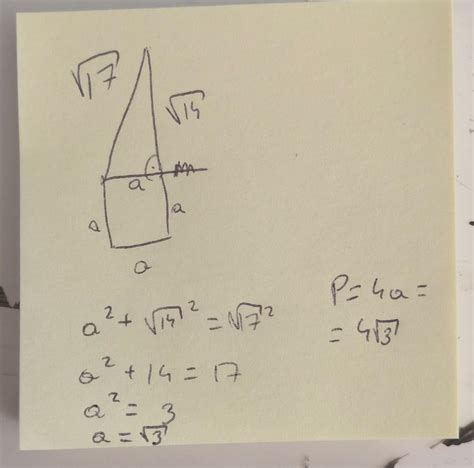 √17
√14
a
a
a
a
a² + √14² = √17²
a² + 14 = 17
a² = 3
a = √3
P = 4a =
= 4√3